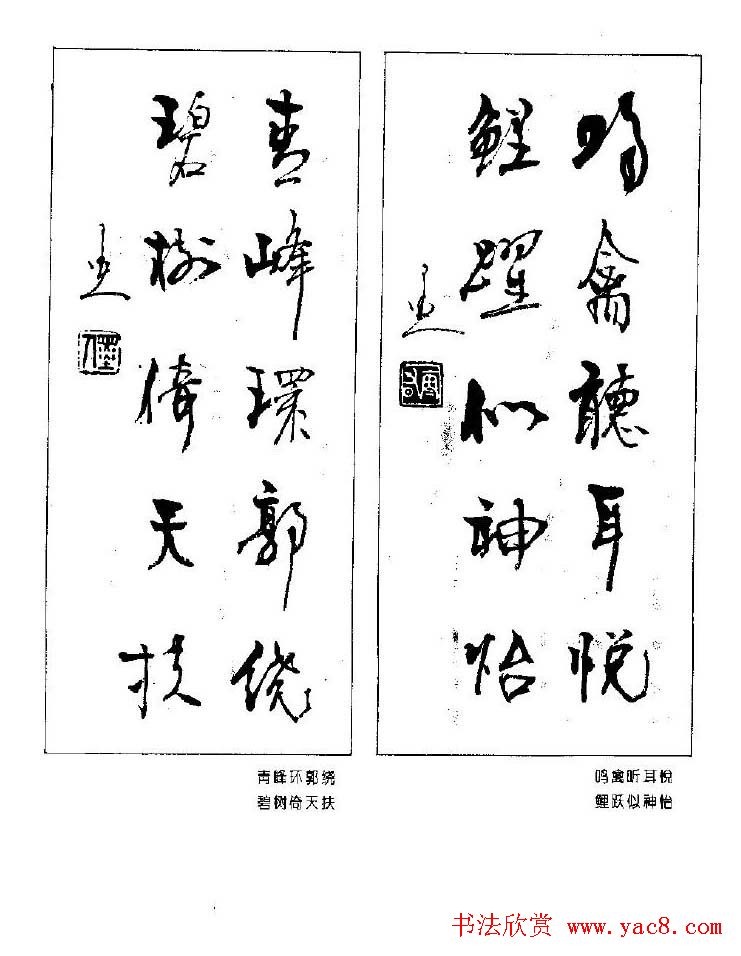 鳴禽聽耳悦
鯉躍似神怡
青峰環郭繞
碧樹倚天扶
鸣禽听耳悦
鲤跃似神怡
青峰环郭绕
碧树倚天扶
书法欣赏 www.yac8.com